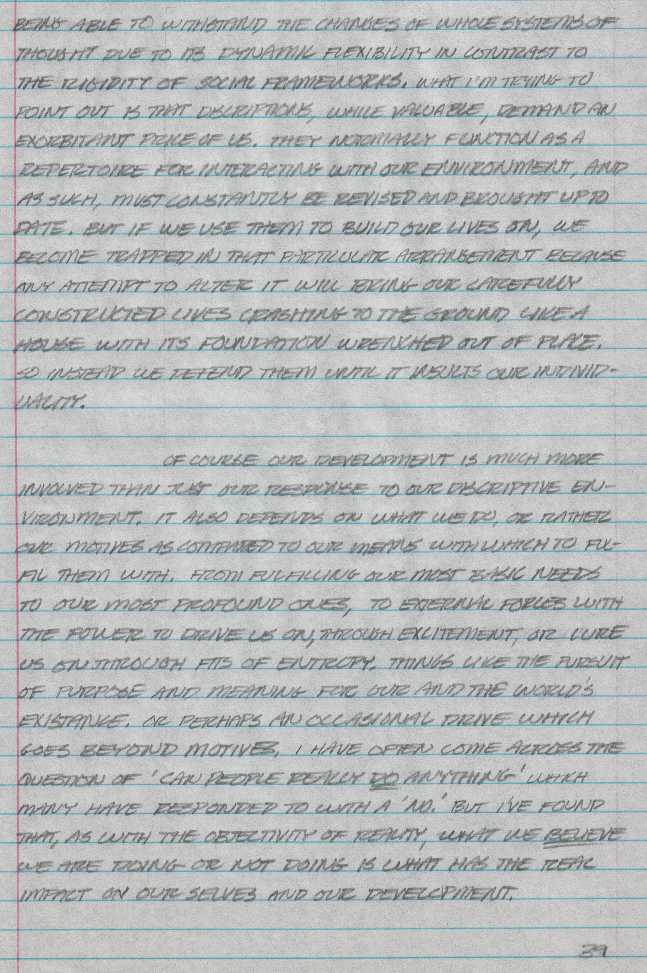 BEING ABLE TO WITHSTAND THE CHANGES OF WHOLE SYSTEMS OF
THOUGHT DUE TO ITS DYNAMIC FLEXIBILITY IN CONTRAST TO
THE RIGIDITY OF SOCIAL FRAMEWORKS. WHAT I'M TRYING TO
POINT OUT IS THAT DISCRIPTIONS, WHILE VALUABLE, DEMAND AN
EXORBITANT PRICE OF US. THEY NORMALLY FUNCTION AS A
REPERTOIRE FOR INTERACTING WITH OUR ENVIRONMENT, AND
AS SUCH, MUST CONSTANTLY BE REVISED AND BROUGHT UP TO
DATE. BUT IF WE USE THEM TO BUILD OUR LIVES ON, WE
BECOME TRAPPED IN THAT PARTICULAR ARRANGEMENT BECAUSE
ANY ATTEMPT TO ALTER IT WILL BRING OUR CAREFULLY
CONSTRUCTED LIVES CRASHING TO THE GROUND LIKE A
HOUSE WITH ITS FOUNDATION WRENCHED OUT OF PLACE.
SO INSTEAD WE DEFEND THEM UNTIL IT INSULTS OUR INDIVID-
UALITY.
OF COURSE OUR DEVELOPMENT IS MUCH MORE
INVOLVED THAN JUST OUR RESPONSE TO OUR DISCRIPTIVE EN-
VIRONMENT. IT ALSO DEPENDS ON WHAT WE DO, OR RATHER
OUR MOTIVES AS COMPARED TO OUR MEANS WITH WHICH TO FUL-
FIL THEM WITH. FROM FULFILLING OUR MOST BASIC NEEDS
TO OUR MOST PROFOUND ONES, TO EXTERNAL FORCES WITH
THE POWER TO DRIVE US ON, THROUGH EXCITEMENT, OR LURE
US ON THROUGH FITS OF ENTROPY. THINGS LIKE THE PURSUIT
OF PURPOSE AND MEANING FOR OUR AND THE WORLD'S
EXISTANCE. OR PERHAPS AN OCCASIONAL DRIVE WHICH
GOES BEYOND MOTIVES. I HAVE OFTEN COME ACROSS THE
QUESTION OF 'CAN PEOPLE REALLY DO ANYTHING' WHICH
MANY HAVE RESPONDED TO WITH A 'NO.' BUT I'VE FOUND
THAT, AS WITH THE OBJECTIVITY OF REALITY, WHAT WE BELIEVE
WE ARE DOING OR NOT DOING IS WHAT HAS THE REAL
IMPACT ON OUR SELVES AND OUR DEVELOPMENT.
39